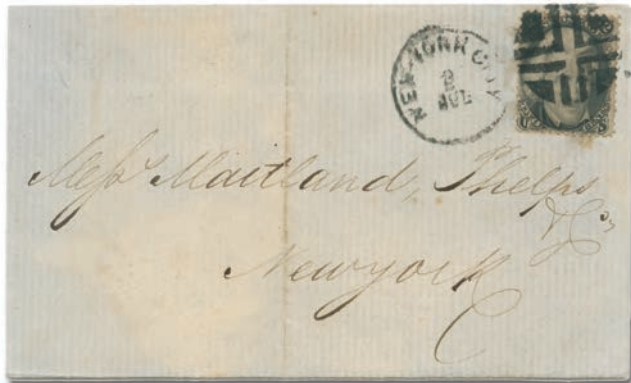 NEW-YORK CITY
2
JUL
U S
Messrs Maitland, Phelps
& Co
New york